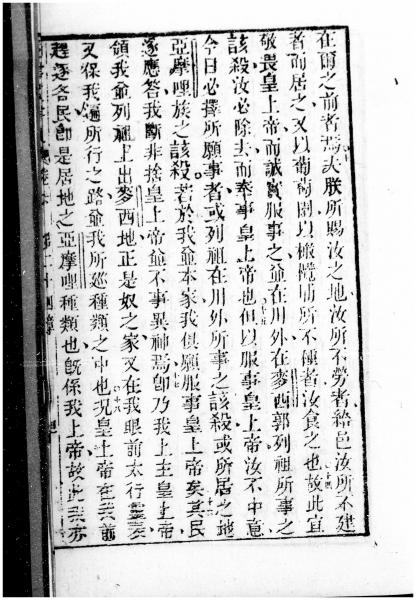 在爾之前者焉夫朕所賜汝之地汝所不勞者給邑汝所不建
者而居之又以葡萄園以橄欖埔所不種者汝食之也故此宜
敬畏皇上帝而誠實服事之爺在川外在麥西郭列祖所事之
該殺汝必除去而奉事皇上帝也但以服事皇上帝汝不中意
今日必擇所願事者或列祖在川外所事之該殺或所居之地
亞摩哩族之該殺若於我爺本家我俱願服事皇上帝矣其民
遂應答我斷非捨皇上帝爺不事異神焉卽乃我上主皇上帝
領我爺列祖上出麥西地正是奴之家又在我眼前大行靈
又保我所行之路爺我所廵種類之中也況皇上帝在我前
逐各民卽是居地之亞摩哩種類也旣係我上帝故此我亦